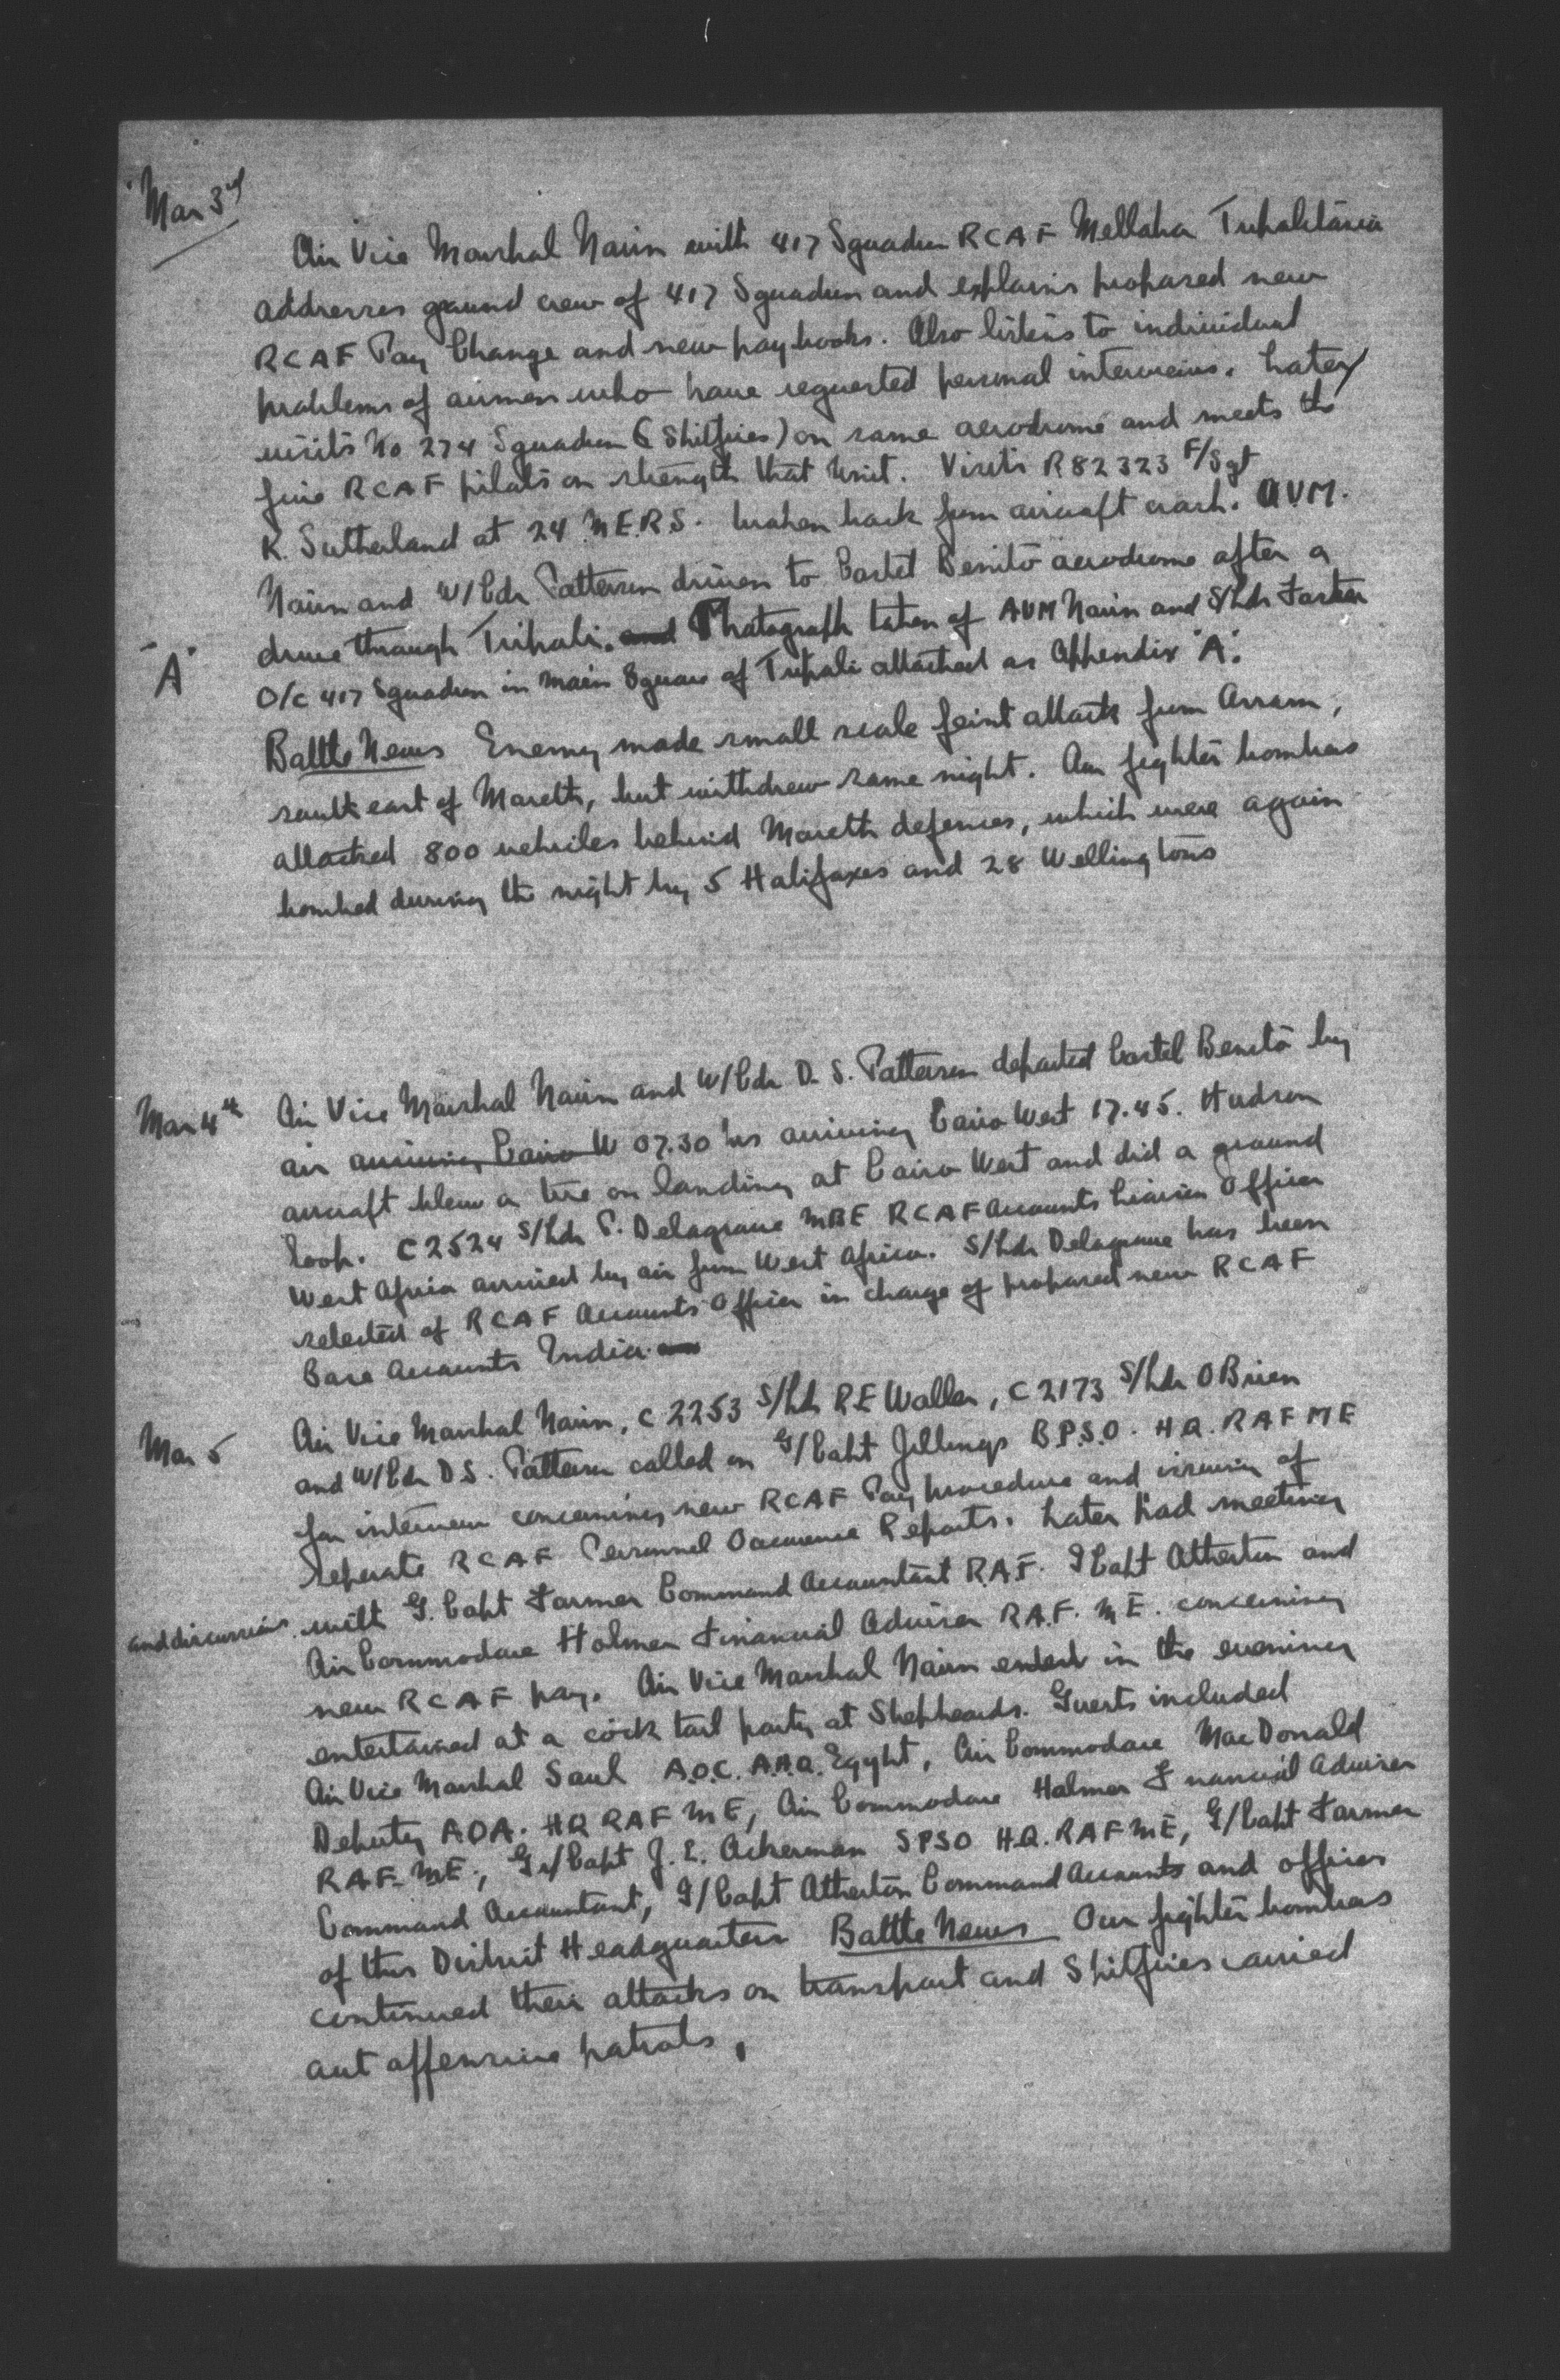 Mar 3rd
Air Vice Marshal Nairn with 417 Squadron RCAF Mellaha Tripolitania
addresses ground crew of 417 Squadron and explains proposed new
RCAF Pay Change and new pay books. Also listens to individual
problems of airmen who have requested personal interviews. Later
visits No 274 Squadron (Spitfires) on same aerodrome and meets the
five RCAF pilots on strength that Unit. Visits R82323 F/Sgt
K. Sutherland at 24 M.E.R.S. broken back from aircraft crash. AVM.
Nairn and W/Cdr Patterson driven to Castel Benito aerodrome after a
drive through Tripoli. and Photograph taken of AVM Nairn and S/Ldr Foster
"A"
O/C 417 Squadron in main Square of Tripoli attached as Appendix "A".
Battle News Enemy made small scale feint attack from Arram,
south east of Mareth, but withdrew same night. Our fighter bombers
attacked 800 vehicles behind Mareth defences, which were again
bombed during the night by 5 Halifaxes and 28 Wellingtons
Mar 4th Air Vice Marshal Nairn and W/Cdr D. S. Patterson departed Castel Benito by
air arriving Cairo W 07.30 hrs arriving Cairo West 17.45. Hudson
aircraft blew a tire on landing at Cairo West and did a ground
loop. C2524 S/Ldr P. Delagrave MBE RCAF Accounts Liaison Officer
West Africa arrived by air from West Africa. S/Ldr Delagrave has been
selected of RCAF Accounts Officer in charge of proposed new RCAF
Base Accounts India
Mar 5 Air Vice Marshal Nairn, C2253 S/Ldr R E Waller, C2173 S/Ldr O Brien
and W/Cdr D S. Patterson called on G/Capt Jillings B.P.S.O. H.Q. RAF ME
for interview concerning new RCAF Pay procedure and issuing of
seperate RCAF Personnel Occurence Reports. Later had meeting
and discussions with G. Capt Farmer Command Accountant R.A.F. G Capt Atherton and
Air Commodore Holmer Financial Adviser R.A.F. M E. concerning
new RCAF pay. Air Vice Marshal Nairn in the evening
entertained at a cock tail party at Shepheards. Guests included
Air Vice Marshal Saul A.O.C. A.H.Q. Egypt, Air Commodore MacDonald
Deputy AOA. HQ RAF ME, Air Commodore Holmer Financial Adviser
RAF. ME., Gr/Capt J. E. Ackerman SPSO H.Q. RAF ME, G/Capt Farmer
Command Accountant, G/Capt Atherton Command Accounts and offices
of this District Headquarters Battle News Our fighter bombers
continued their attacks on transport and Spitfires carried
out offensive patrols.